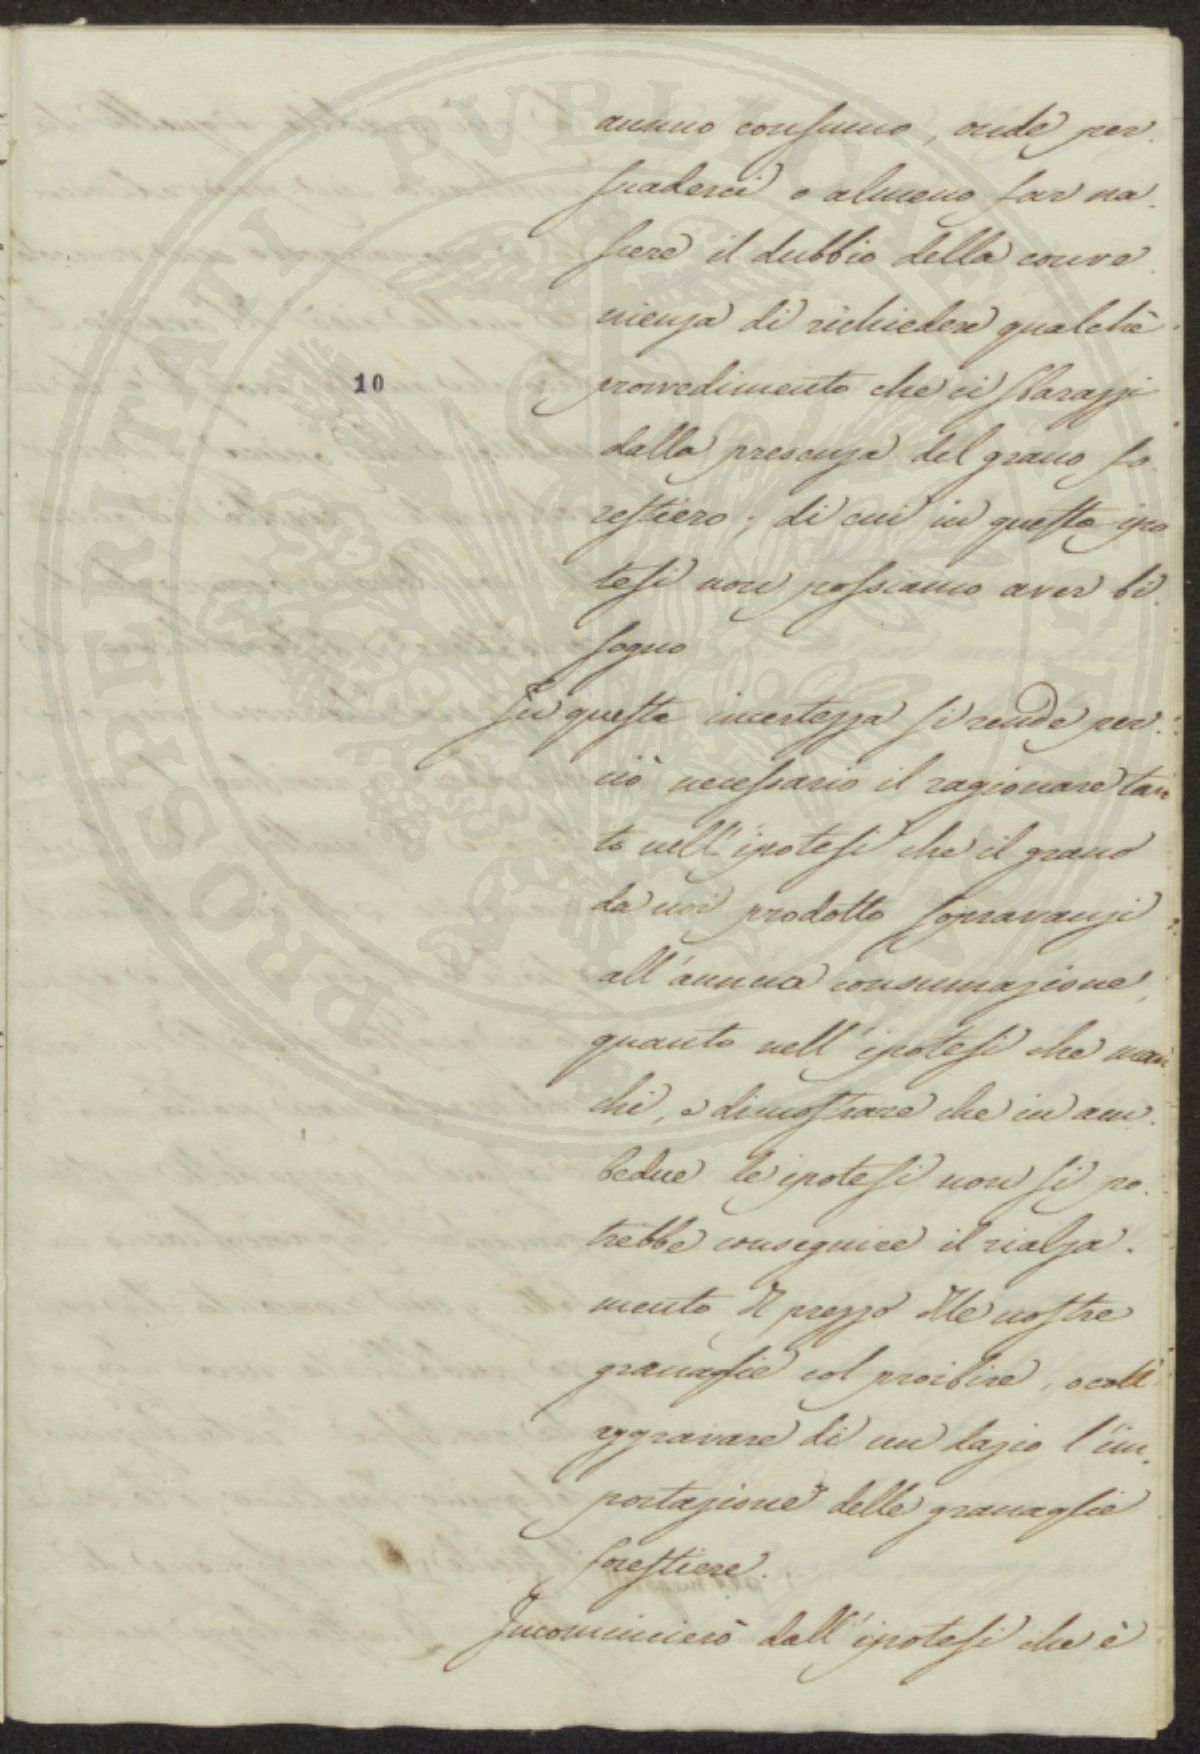 PROSPERITATI PVBLICAE AVGENDAE
10
annuo consumo, onde per.
suaderci o almeno far na.
scere il dubbio della conve.
nienza di richiedere qualche
provvedimento che ci sbarazzi
dalla presenza del grano fo.
restiero, di cui in questa ipo
tesi non possiamo aver bi.
sogno
In questa incertezza si rende per.
ciò necessario il ragionare tan
to nell'ipotesi che il grano
da noi prodotto sopravanzi
all'annua consumazione,
quanto nell'ipotesi che man
chi, e dimostrare che in am.
bedue le ipotesi non si po.
trebbe conseguire il rialza.
mento del prezzo delle nostre
granaglie col proibire, o coll'
aggravare di un dazio l'im.
portazione delle granaglie
forestiere.
Incomincierò dall'ipotesi che è